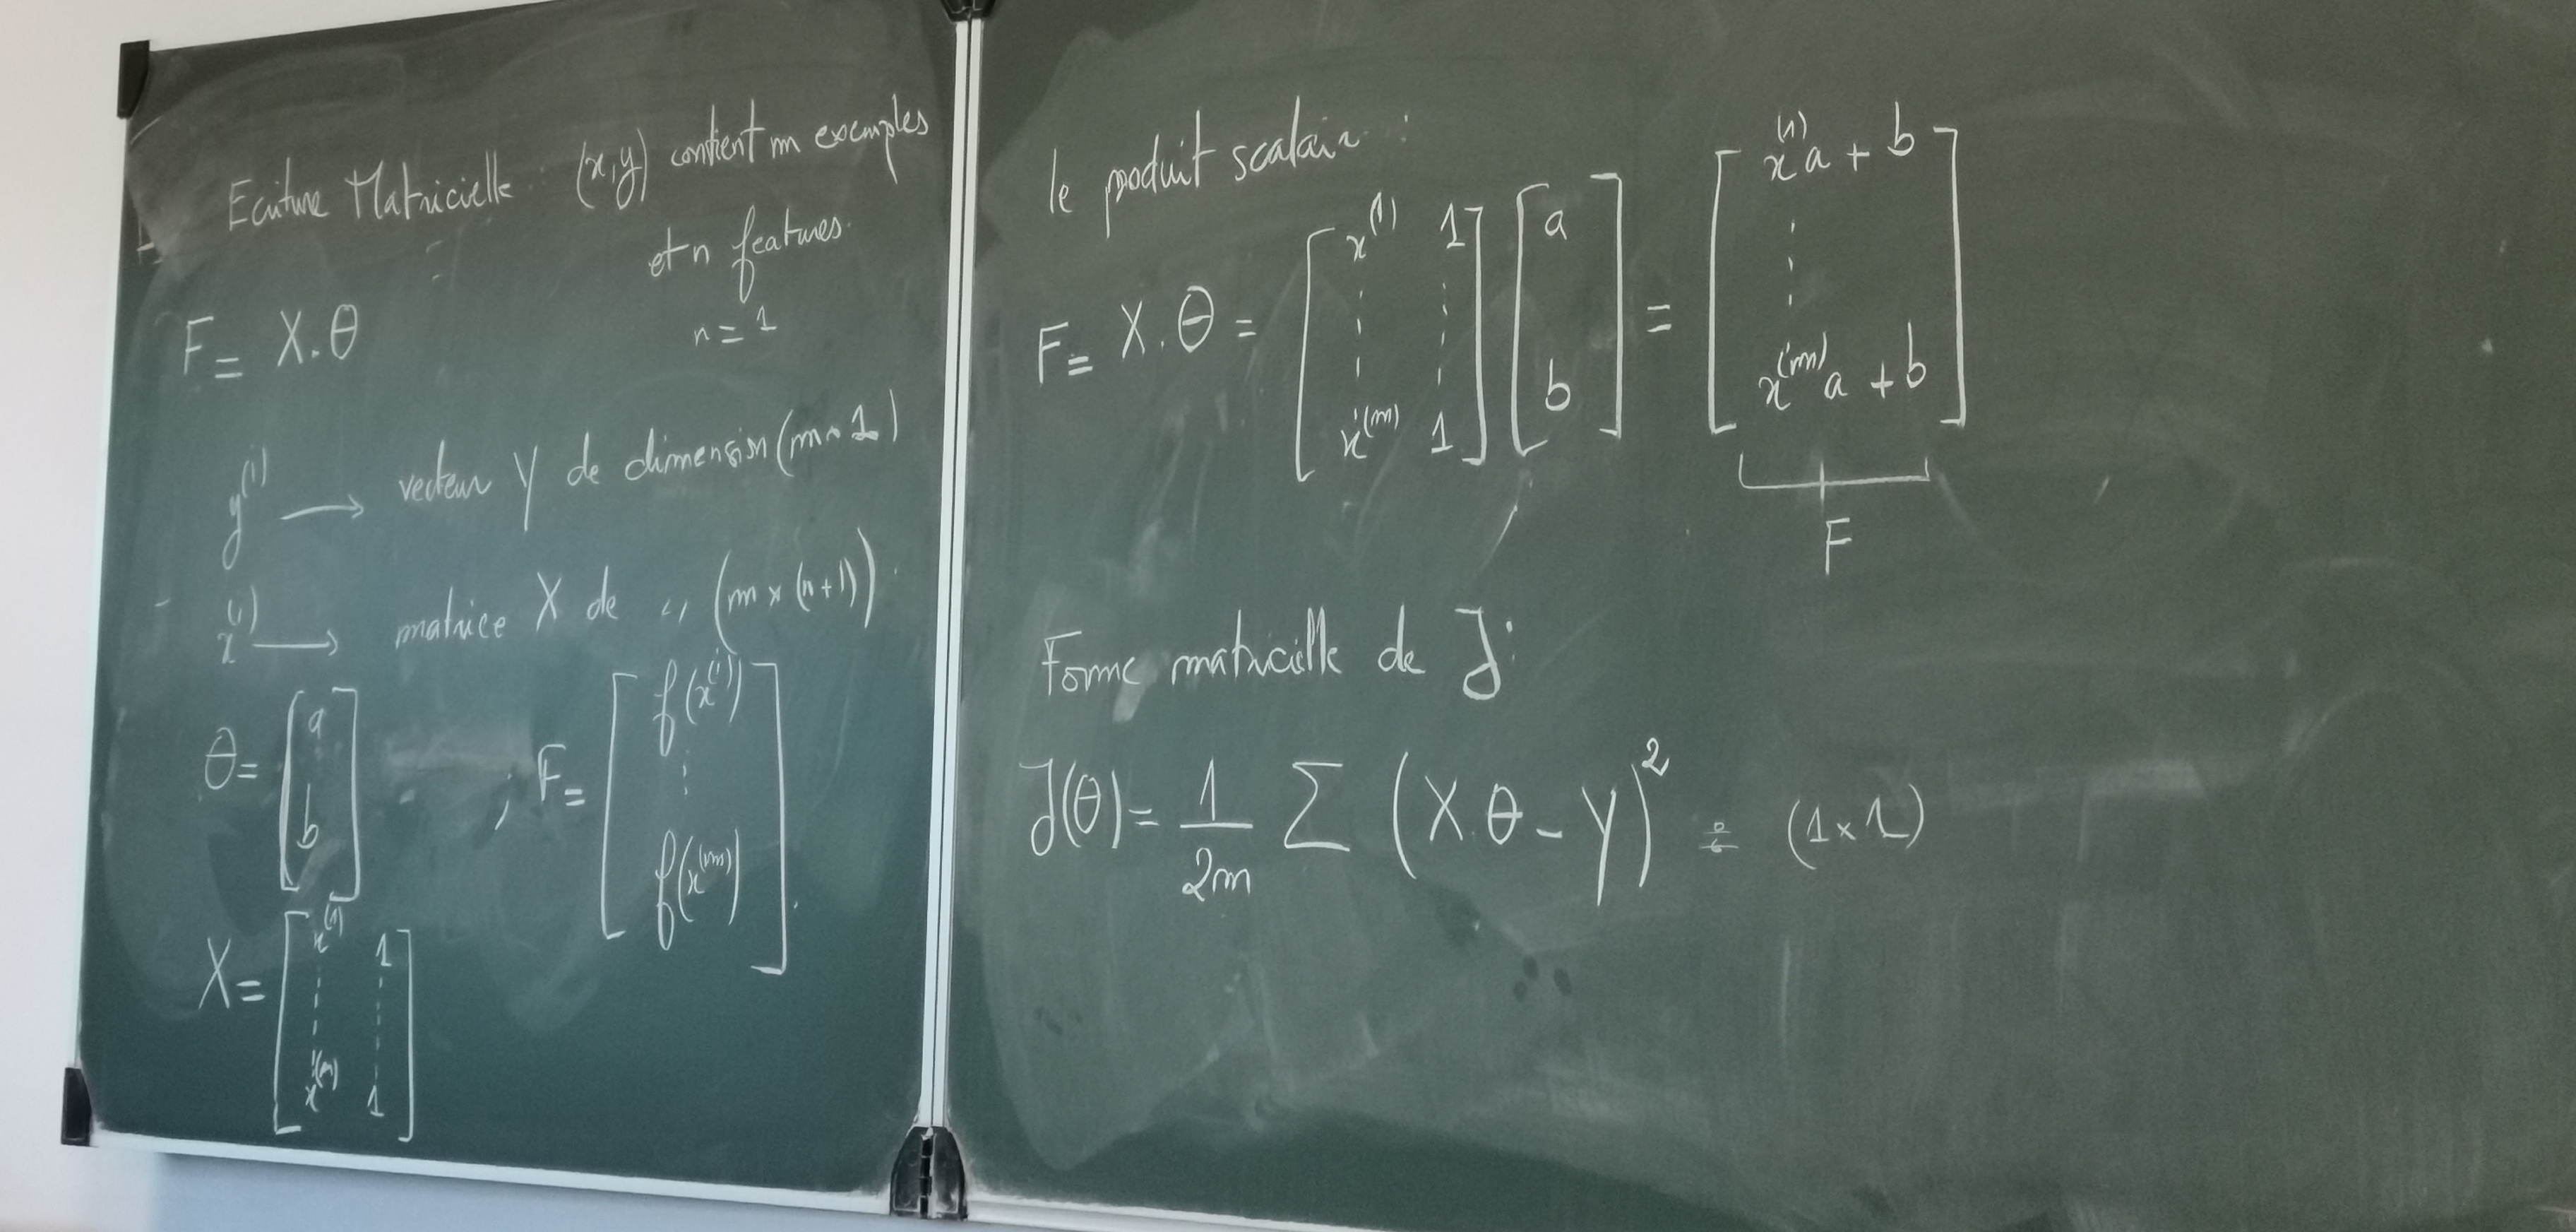 Ecriture Matricielle : (x,y) contient m exemples
et n features.
n = 1
F = X.θ
y^(i) → vecteur Y de dimension (m × 1)
x^(i) → matrice X de ,, (m × (n+1))
θ = [a b] ; F = [f(x^(i)) ⋮ f(x^(m))]
X = [x^(1) 1 ⋮ ⋮ x^(m) 1]
le produit scalair :
F = X.θ = [x^(1) 1 ⋮ ⋮ x^(m) 1] [a b] = [x^(1)a + b ⋮ x^(m)a + b]
F
Forme matricielle de J:
J(θ) = 1/2m Σ (X.θ - Y)^2 ÷ (1×1)